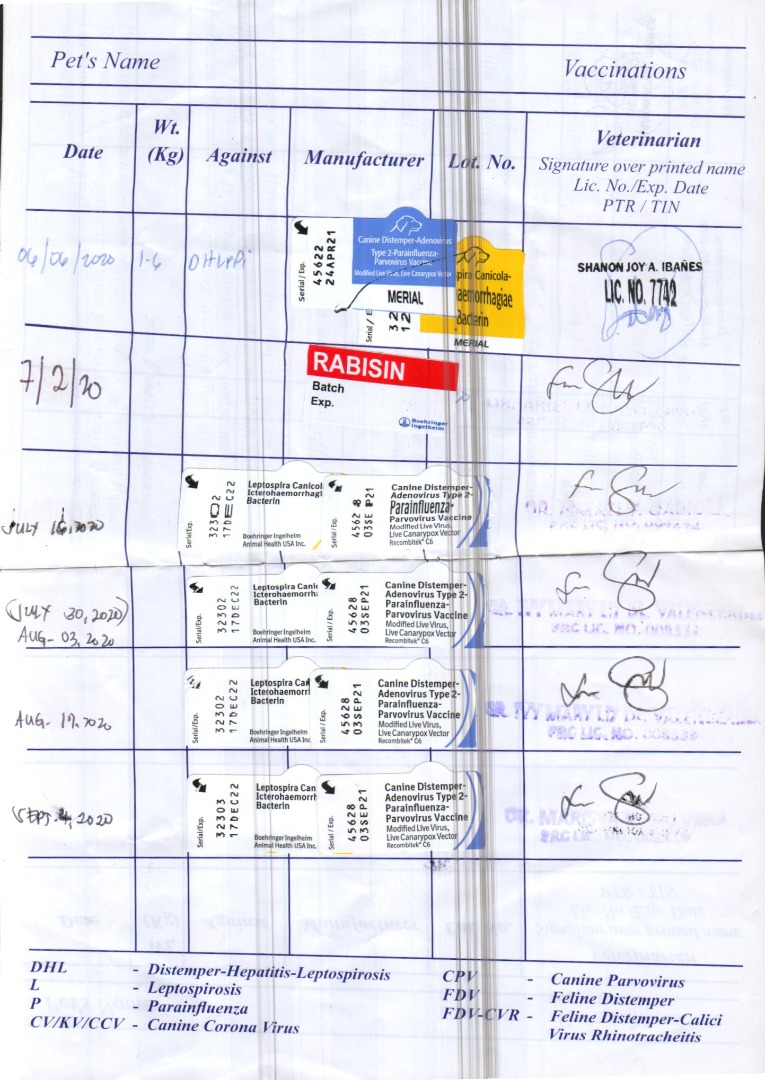 Pet's Name
Vaccinations
Date
Wt.
(Kg)
Against
Manufacturer
Lot. No.
Veterinarian
Signature over printed name
Lic. No./Exp. Date
PTR / TIN
06/06/2020
DHLPPi
Serial / Exp.
45622
24APR21
Canine Distemper-Adenovirus
Type 2-Parainfluenza-
Parvovirus Vaccine
Modified Live Virus, Live Canarypox Vector
MERIAL
pira Canicola-
aemorrhagiae
Bacterin
MERIAL
SHANON JOY A. IBAÑES
LIC. NO. 7742
7/2/20
RABISIN
Batch
Exp.
Boehringer
Ingelheim
JULY 16, 2020
Serial/Exp.
32302
17DEC22
Leptospira Canicol
Icterohaemorrhagi
Bacterin
Boehringer Ingelheim
Animal Health USA Inc.
Serial / Exp.
4562 8
03SE P21
Canine Distemper-
Adenovirus Type 2-
Parainfluenza-
Parvovirus Vaccine
Modified Live Virus,
Live Canarypox Vector
Recombitek® C6
(JULY 30, 2020)
AUG. 03, 2020
Serial/Exp.
32302
17DEC22
Leptospira Cani
Icterohaemorrh
Bacterin
Boehringer Ingelheim
Animal Health USA Inc.
Serial / Exp.
45628
03SEP21
Canine Distemper-
Adenovirus Type 2-
Parainfluenza-
Parvovirus Vaccine
Modified Live Virus,
Live Canarypox Vector
Recombitek® C6
PRC LIC. NO.
AUG. 17, 2020
Serial/Exp.
32302
17DEC22
Leptospira Can
Icterohaemorrl
Bacterin
Boehringer Ingelheim
Animal Health USA Inc.
Serial / Exp.
45628
03SEP21
Canine Distemper-
Adenovirus Type 2-
Parainfluenza-
Parvovirus Vaccine
Modified Live Virus,
Live Canarypox Vector
Recombitek® C6
PRC LIC. NO.
SEPT. 4, 2020
Serial/Exp.
32303
17DEC22
Leptospira Can
Icterohaemorrh
Bacterin
Boehringer Ingelheim
Animal Health USA Inc.
Serial / Exp.
45628
03SEP21
Canine Distemper-
Adenovirus Type 2-
Parainfluenza-
Parvovirus Vaccine
Modified Live Virus,
Live Canarypox Vector
Recombitek® C6
PRC LIC. NO.
DHL - Distemper-Hepatitis-Leptospirosis
L - Leptospirosis
P - Parainfluenza
CV/KV/CCV - Canine Corona Virus
CPV - Canine Parvovirus
FDV - Feline Distemper
FDV-CVR - Feline Distemper-Calici
Virus Rhinotracheitis